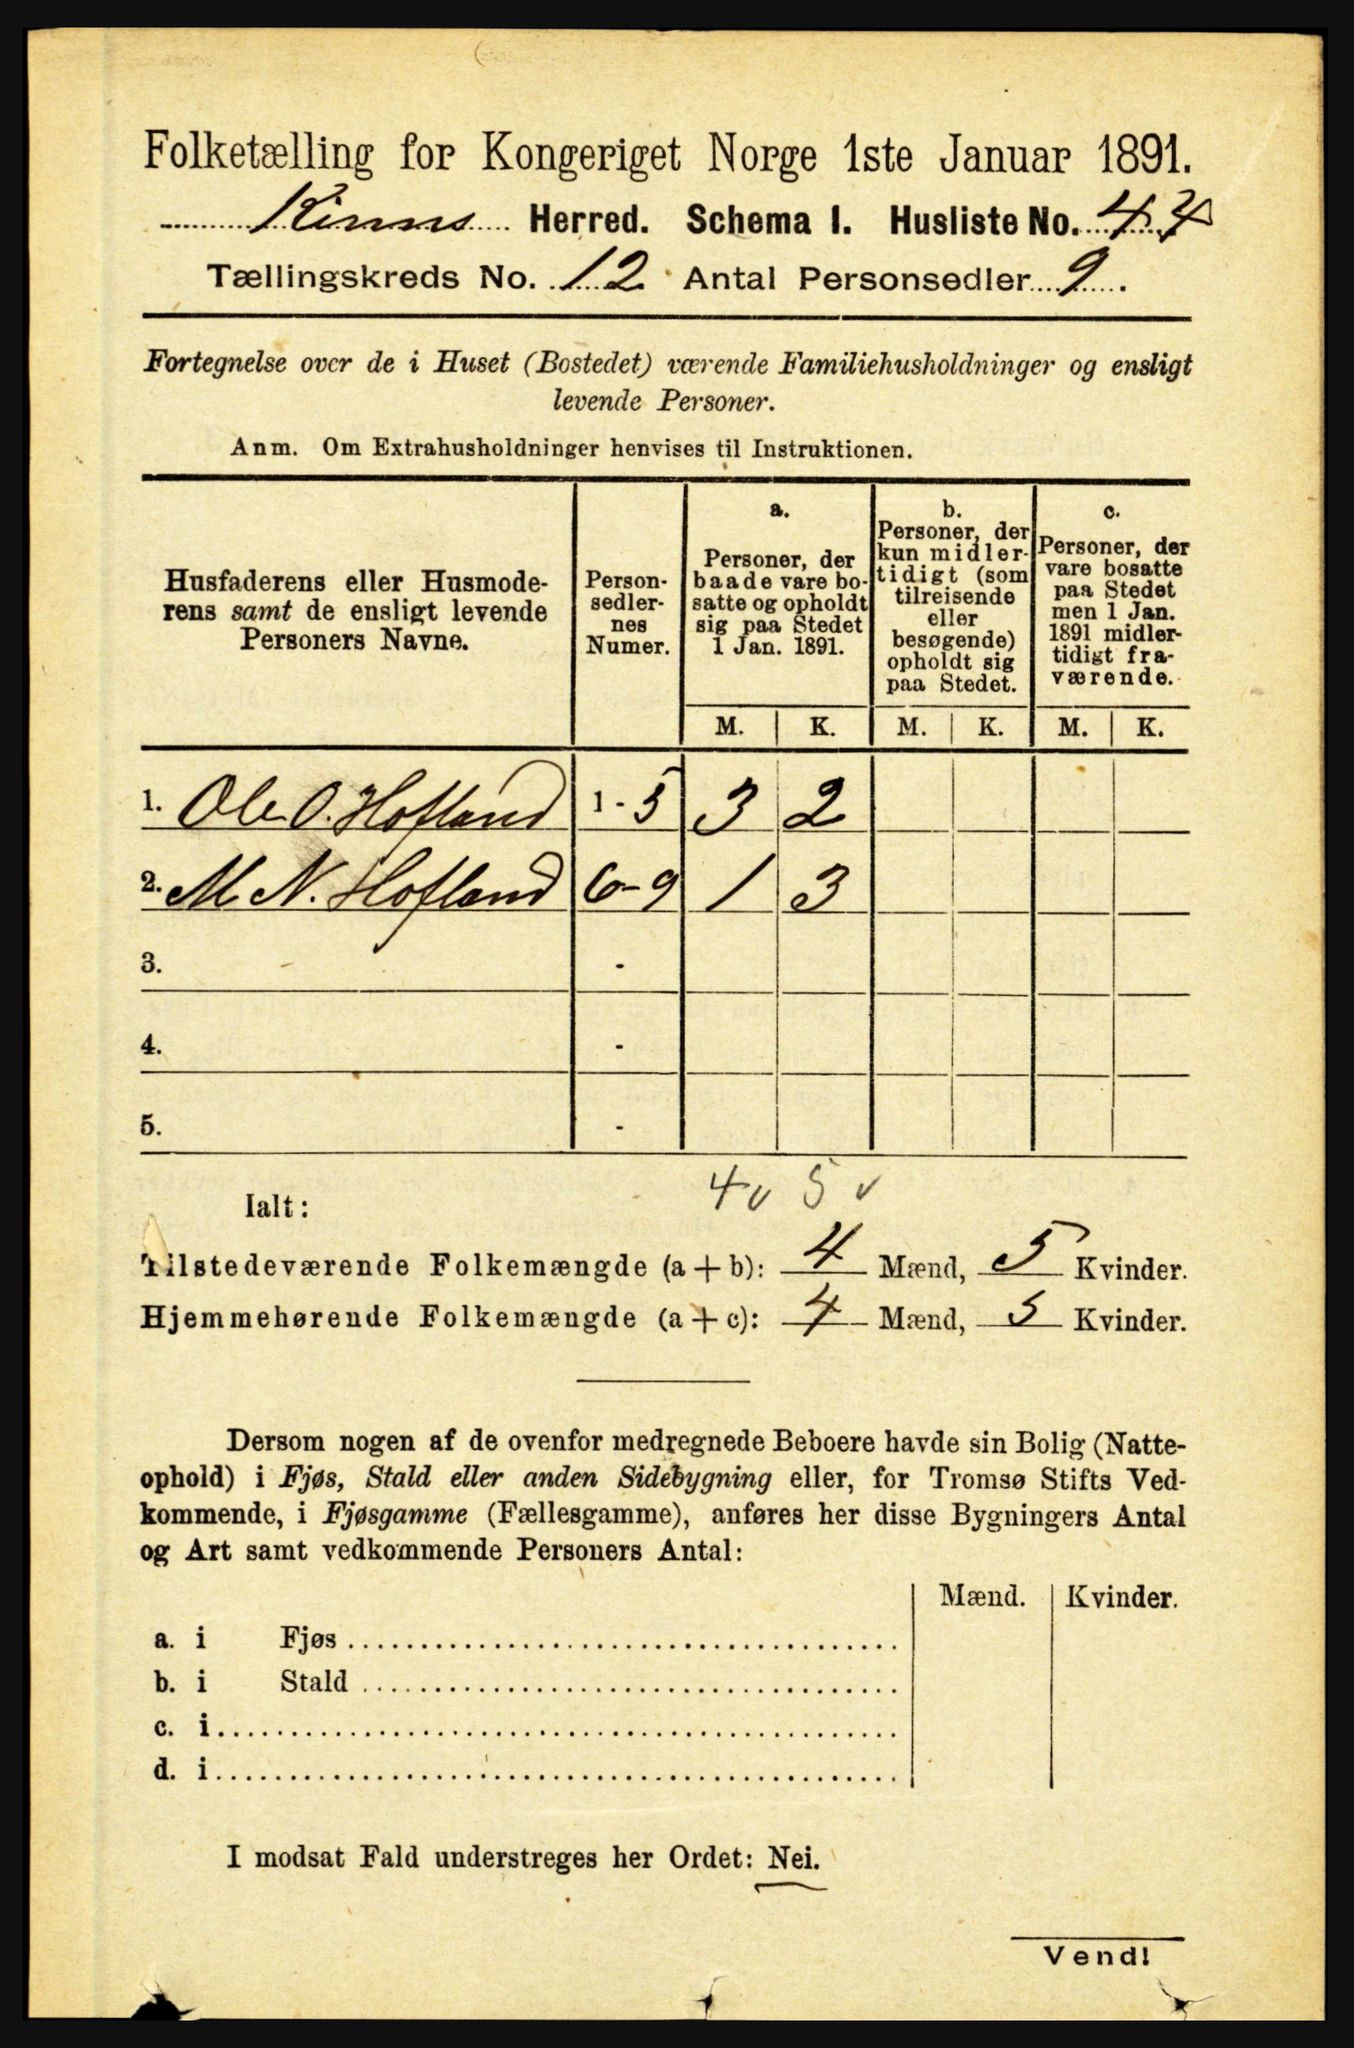 Folketælling for Kongeriget Norge 1ste Januar 1891.
Kinns Herred. Schema I. Husliste No. 44
Tællingskreds No. 12 Antal Personsedler 9.
Fortegnelse over de i Huset (Bostedet) værende Familiehusholdninger og ensligt
levende Personer.
Anm. Om Extrahusholdninger henvises til Instruktionen.
Husfaderens eller Husmode-
rens samt de ensligt levende
Personers Navne.
Person-
sedler-
nes
Numer.
a.
Personer, der
baade vare bo-
satte og opholdt
sig paa Stedet
1 Jan. 1891.
b.
Personer, der
kun midler-
tidigt (som
tilreisende
eller
besøgende)
opholdt sig
paa Stedet.
c.
Personer, der
vare bosatte
paa Stedet
men 1 Jan.
1891 midler-
tidigt fra-
værende.
M. K. M. K. M. K.
1. Ole O. Hofland 1 - 5 3 2
2. M. N. Hofland 6 - 9 1 3
3. -
4. -
5. -
4 v 5 v
Ialt:
Tilstedeværende Folkemængde (a + b): 4 Mænd, 5 Kvinder.
Hjemmehørende Folkemængde (a + c): 4 Mænd, 5 Kvinder.
Dersom nogen af de ovenfor medregnede Beboere havde sin Bolig (Natte-
ophold) i Fjøs, Stald eller anden Sidebygning eller, for Tromsø Stifts Ved-
kommende, i Fjøsgamme (Fællesgamme), anføres her disse Bygningers Antal
og Art samt vedkommende Personers Antal:
Mænd. Kvinder.
a. i Fjøs
b. i Stald
c. i
d. i
I modsat Fald understreges her Ordet: Nei.
Vend!